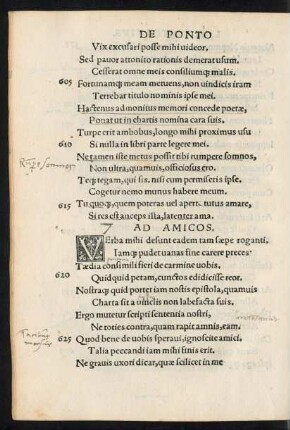 DE PONTO
Vix excusari posse mihi videor.
Sed pavor attonito rationis demerat usum.
Cesserat omne meis consiliumq; malis.
605 Fortunamq; meam metuens, non vindicis iram
Terrebar titulo nominis ipse mei.
Hactenus admonitus memori concede poetæ,
Ponat ut in chartis nomina cara suis.
Turpe erit ambobus, longo mihi proximus usu
610 Si nulla in libri parte legere mei.
Ne tamen iste metus possit tibi rumpere somnos,
Non ultra, quamuis, officiosus ero.
Teq; tegam, qui sis, nisi cum permiseris ipse.
Cogetur nemo munus habere meum.
615 Tu, quoq;, quem poteras vel apert. tutus amare,
Si res est anceps illa, latenter ama.
AD AMICOS.
VErba mihi desunt eadem tam sæpe roganti,
Iamq; pudet uanas fine carere preces.
Tædia consimili fieri de carmine uobis,
620 Quidquid petam, cunctos edidicisse reor.
Nostraq; quid portet iam nostis epistola, quamuis
Charta sit a uinclis non labefacta suis.
Ergo mutetur scripti sententia nostri,
Ne toties contra, quam rapit amnis, eam.
625 Quod bene de vobis speraui, ignoscite amici.
Talia peccandi iam mihi finis erit.
Ne grauis uxori dicar, quæ scilicet in me